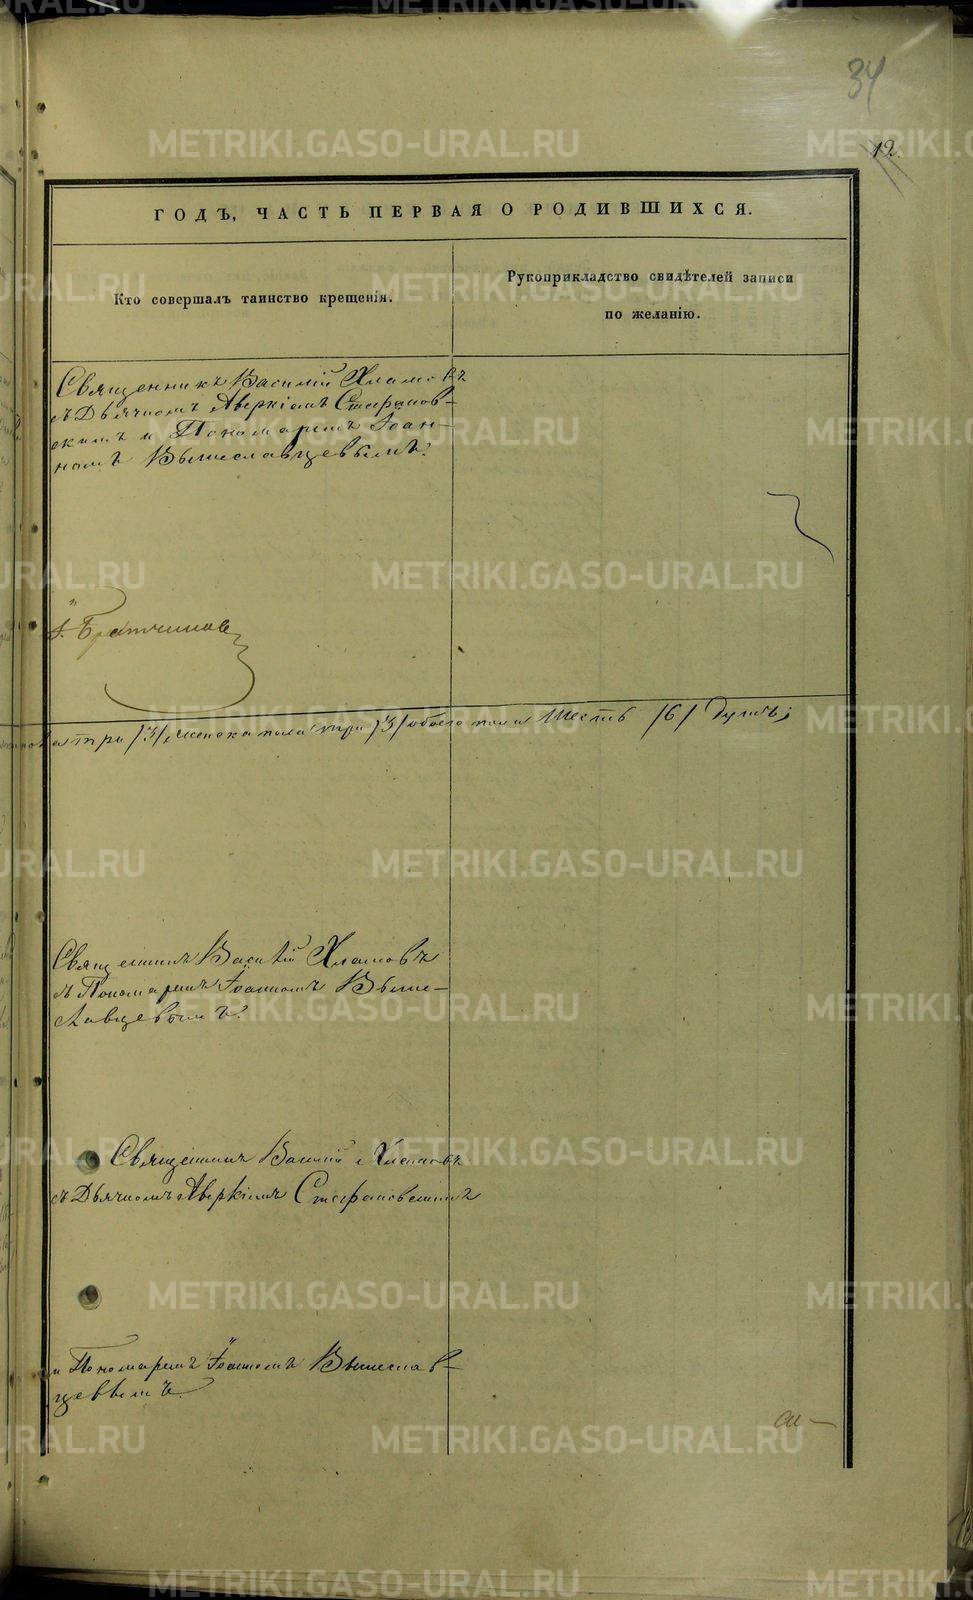 34
12.
ГОДЪ, ЧАСТЬ ПЕРВАЯ О РОДИВШИХСЯ.
Кто совершалъ таинство крещенія.
Рукоприкладство свидѣтелей записи
по желанію.
Священникъ Василій Хламовъ
съ Дьячкомъ Аверкіемъ Стефанов-
скимъ и Пономаремъ Іоан-
номъ Вышеславцевымъ.
три /3/ женска пола три /3/ обоего пола шесть /6/ душъ;
Священникъ Василій Хламовъ
съ Пономаремъ Іоанномъ Выше-
славцевымъ.
Священникъ Василій Хламовъ
съ Дьячкомъ Аверкіемъ Стефановскимъ
и Пономаремъ Іоанномъ Вышеслав-
цевымъ.
METRIKI.GASO-URAL.RU